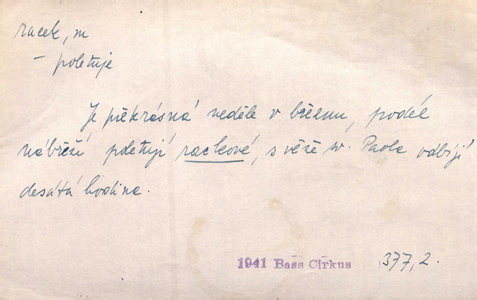 racek, m
– poletuje
Je překrásná neděle v březnu, podél
nábřeží poletují rackové, s věže sv. Pavla odbíjí
desátá hodina.
1941 Bass Cirkus 377,2.